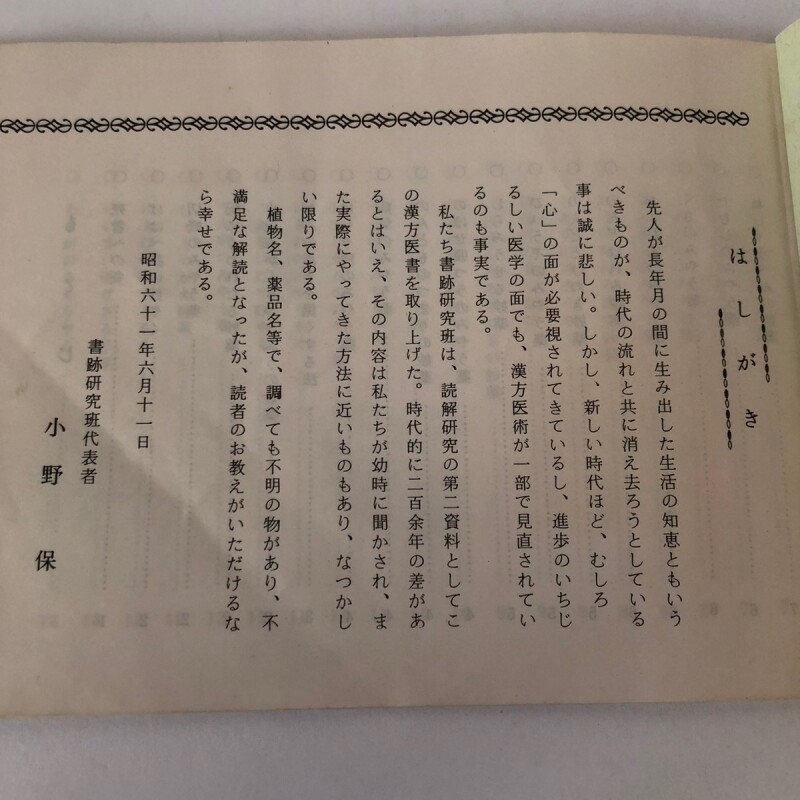 はしがき
先人が長年月の間に生み出した生活の知恵ともいう
べきものが、時代の流れと共に消え去ろうとしている
事は誠に悲しい。しかし、新しい時代ほど、むしろ
「心」の面が必要視されてきているし、進歩のいちじ
るしい医学の面でも、漢方医術が一部で見直されてい
るのも事実である。
私たち書跡研究班は、読解研究の第二資料としてこ
の漢方医書を取り上げた。時代的に二百余年の差があ
るとはいえ、その内容は私たちが幼時に聞かされ、ま
た実際にやってきた方法に近いものもあり、なつかし
い限りである。
植物名、薬品名等で、調べても不明の物があり、不
満足な解読となったが、読者のお教えがいただけるな
ら幸せである。
昭和六十一年六月十一日
書跡研究班代表者
小野保